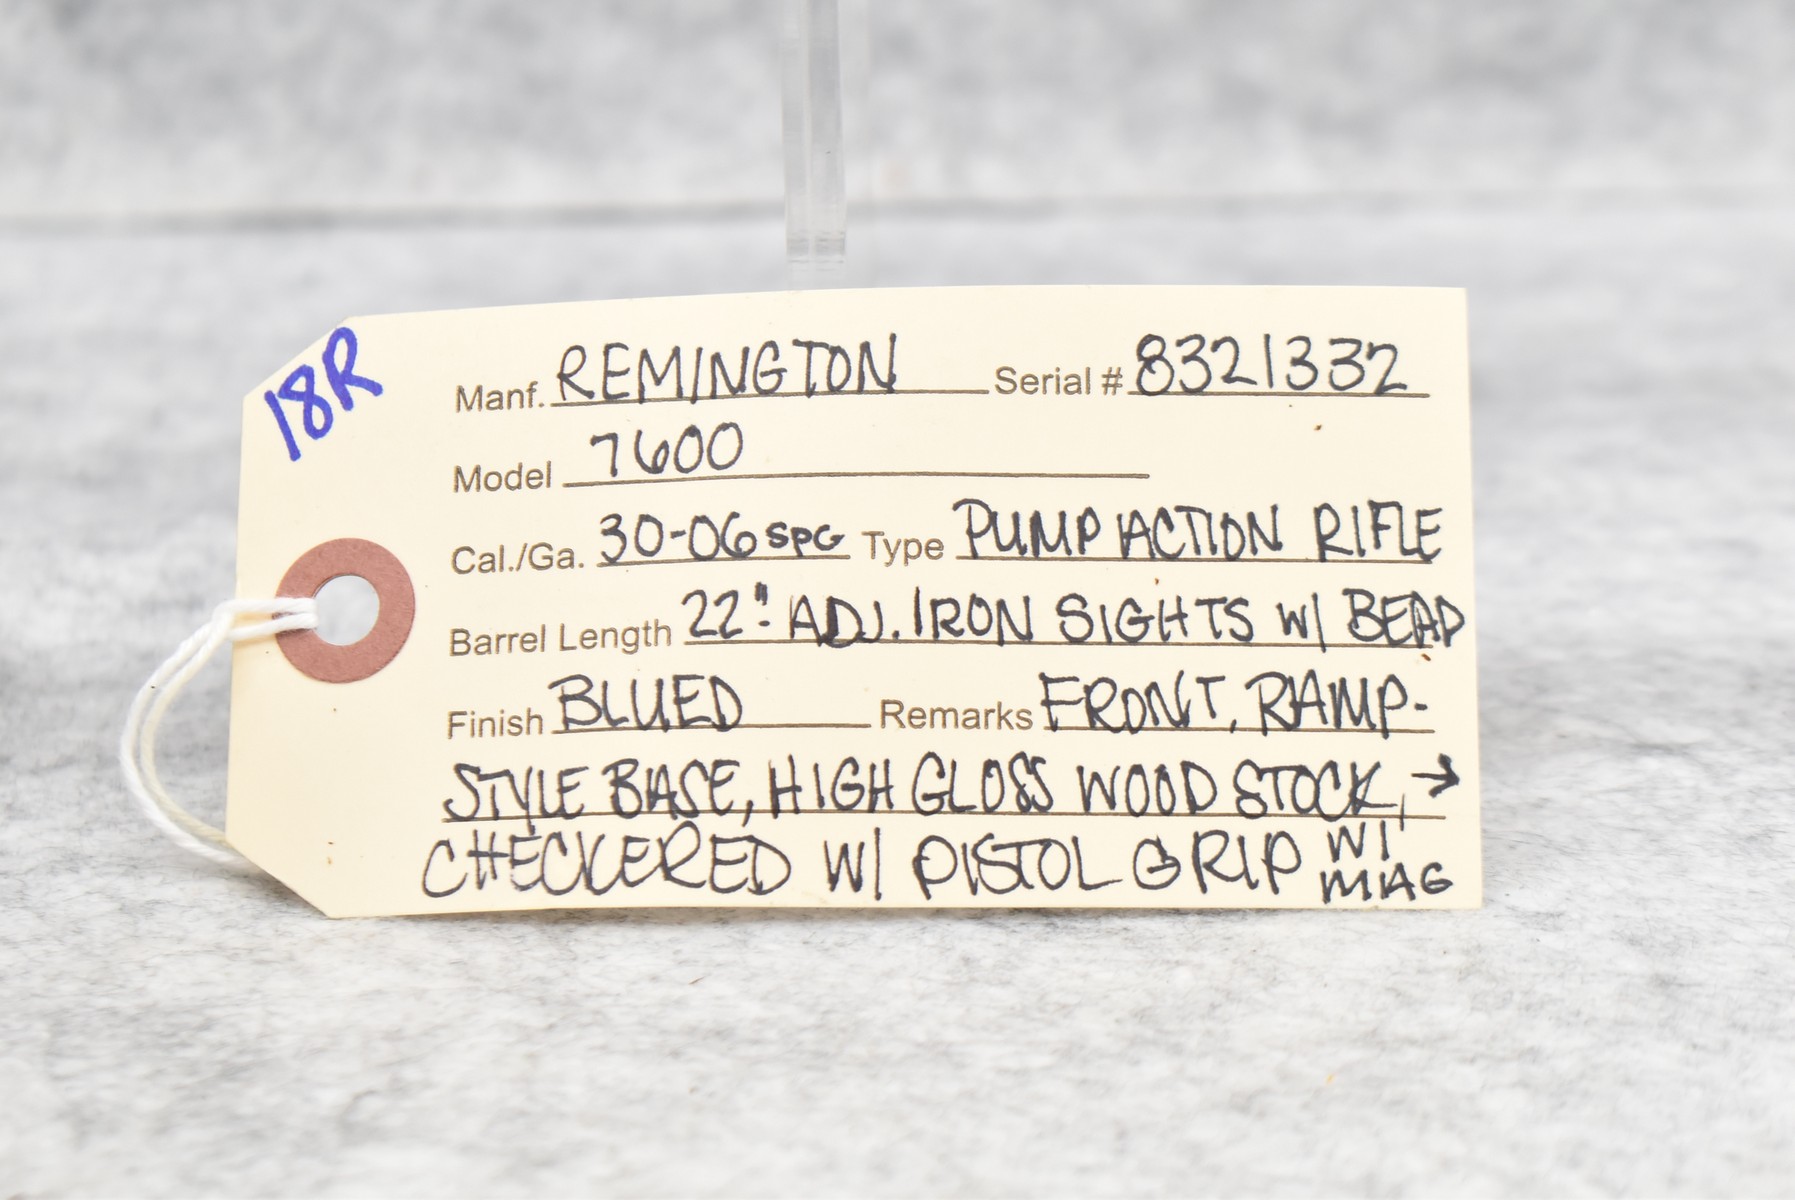 18R
Manf. REMINGTON Serial # 8321332
Model 7600
Cal./Ga. 30-06 SPG Type PUMP ACTION RIFLE
Barrel Length 22" ADJ. IRON SIGHTS W/ BEAD
Finish BLUED Remarks FRONT, RAMP-
STYLE BASE, HIGH GLOSS WOOD STOCK, →
CHECKERED W/ PISTOL GRIP W/
MAG